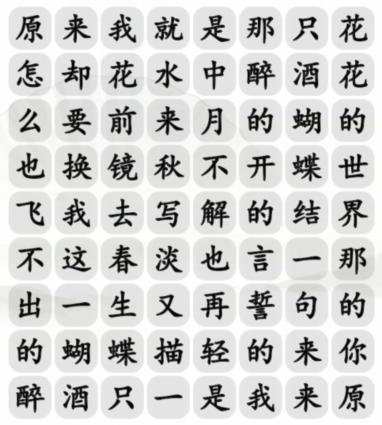 原来我就是那只花
怎却花水中醉酒花
么要前来月的蝴的
也换镜秋不开蝶世
飞我去写解的结界
不这春淡也言一那
出一生又再誓句的
的蝴蝶描轻的来你
醉酒只一是我来原